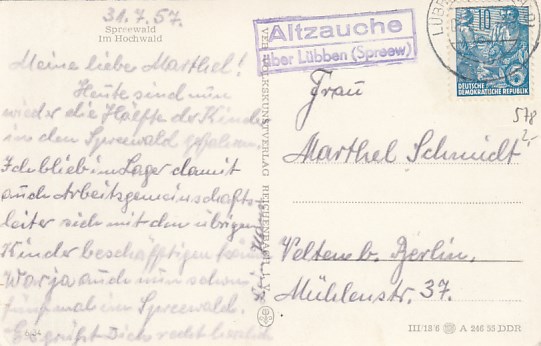 31.7.57.
Spreewald
Im Hochwald
Meine lieber Marthel!
Heute sind nun
wieder die Hälfte der Kinder
in den Spreewald gefahren.
Ich blieb im Lager damit
auch Arbeitsgemeinschafts-
leiter sich mit den übrigen
Kinder beschäfftigen kann
War ja auch nun schon
fünfmal im Spreewald.
Es grüßt Dich recht herzlich
VEB VOLKSKUNSTVERLAG REICHENBACH I. V.
Altzauche
über Lübben (Spreew)
10
DEUTSCHE
DEMOKRATISCHE REPUBLIK
578
2,-
Frau
Marthel Schmidt
Velten b. Berlin,
Mühlenstr. 37.
III/18/6 A 246 55 DDR